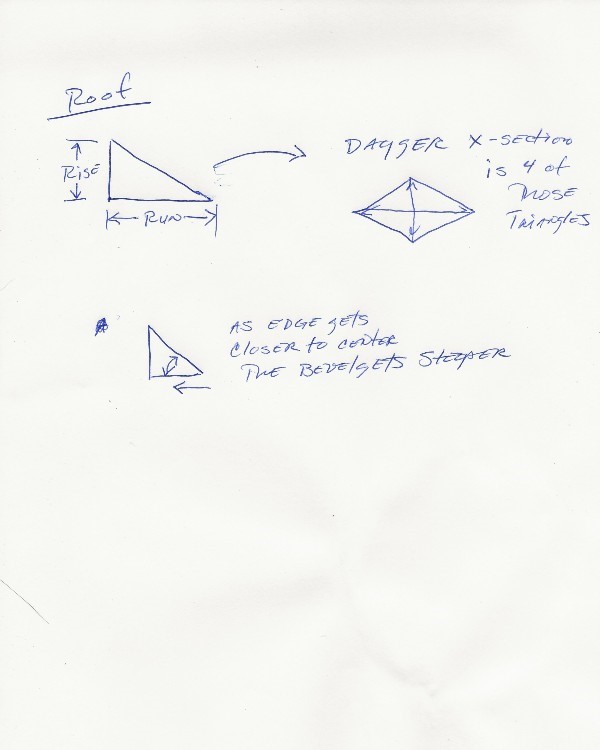 Roof
RISE
RUN
DAGGER X-SECTION
is 4 of
THOSE
TRIANGLES
AS EDGE gETS
CLOSER TO CENTER
THE BEVEL gETS STEEPER